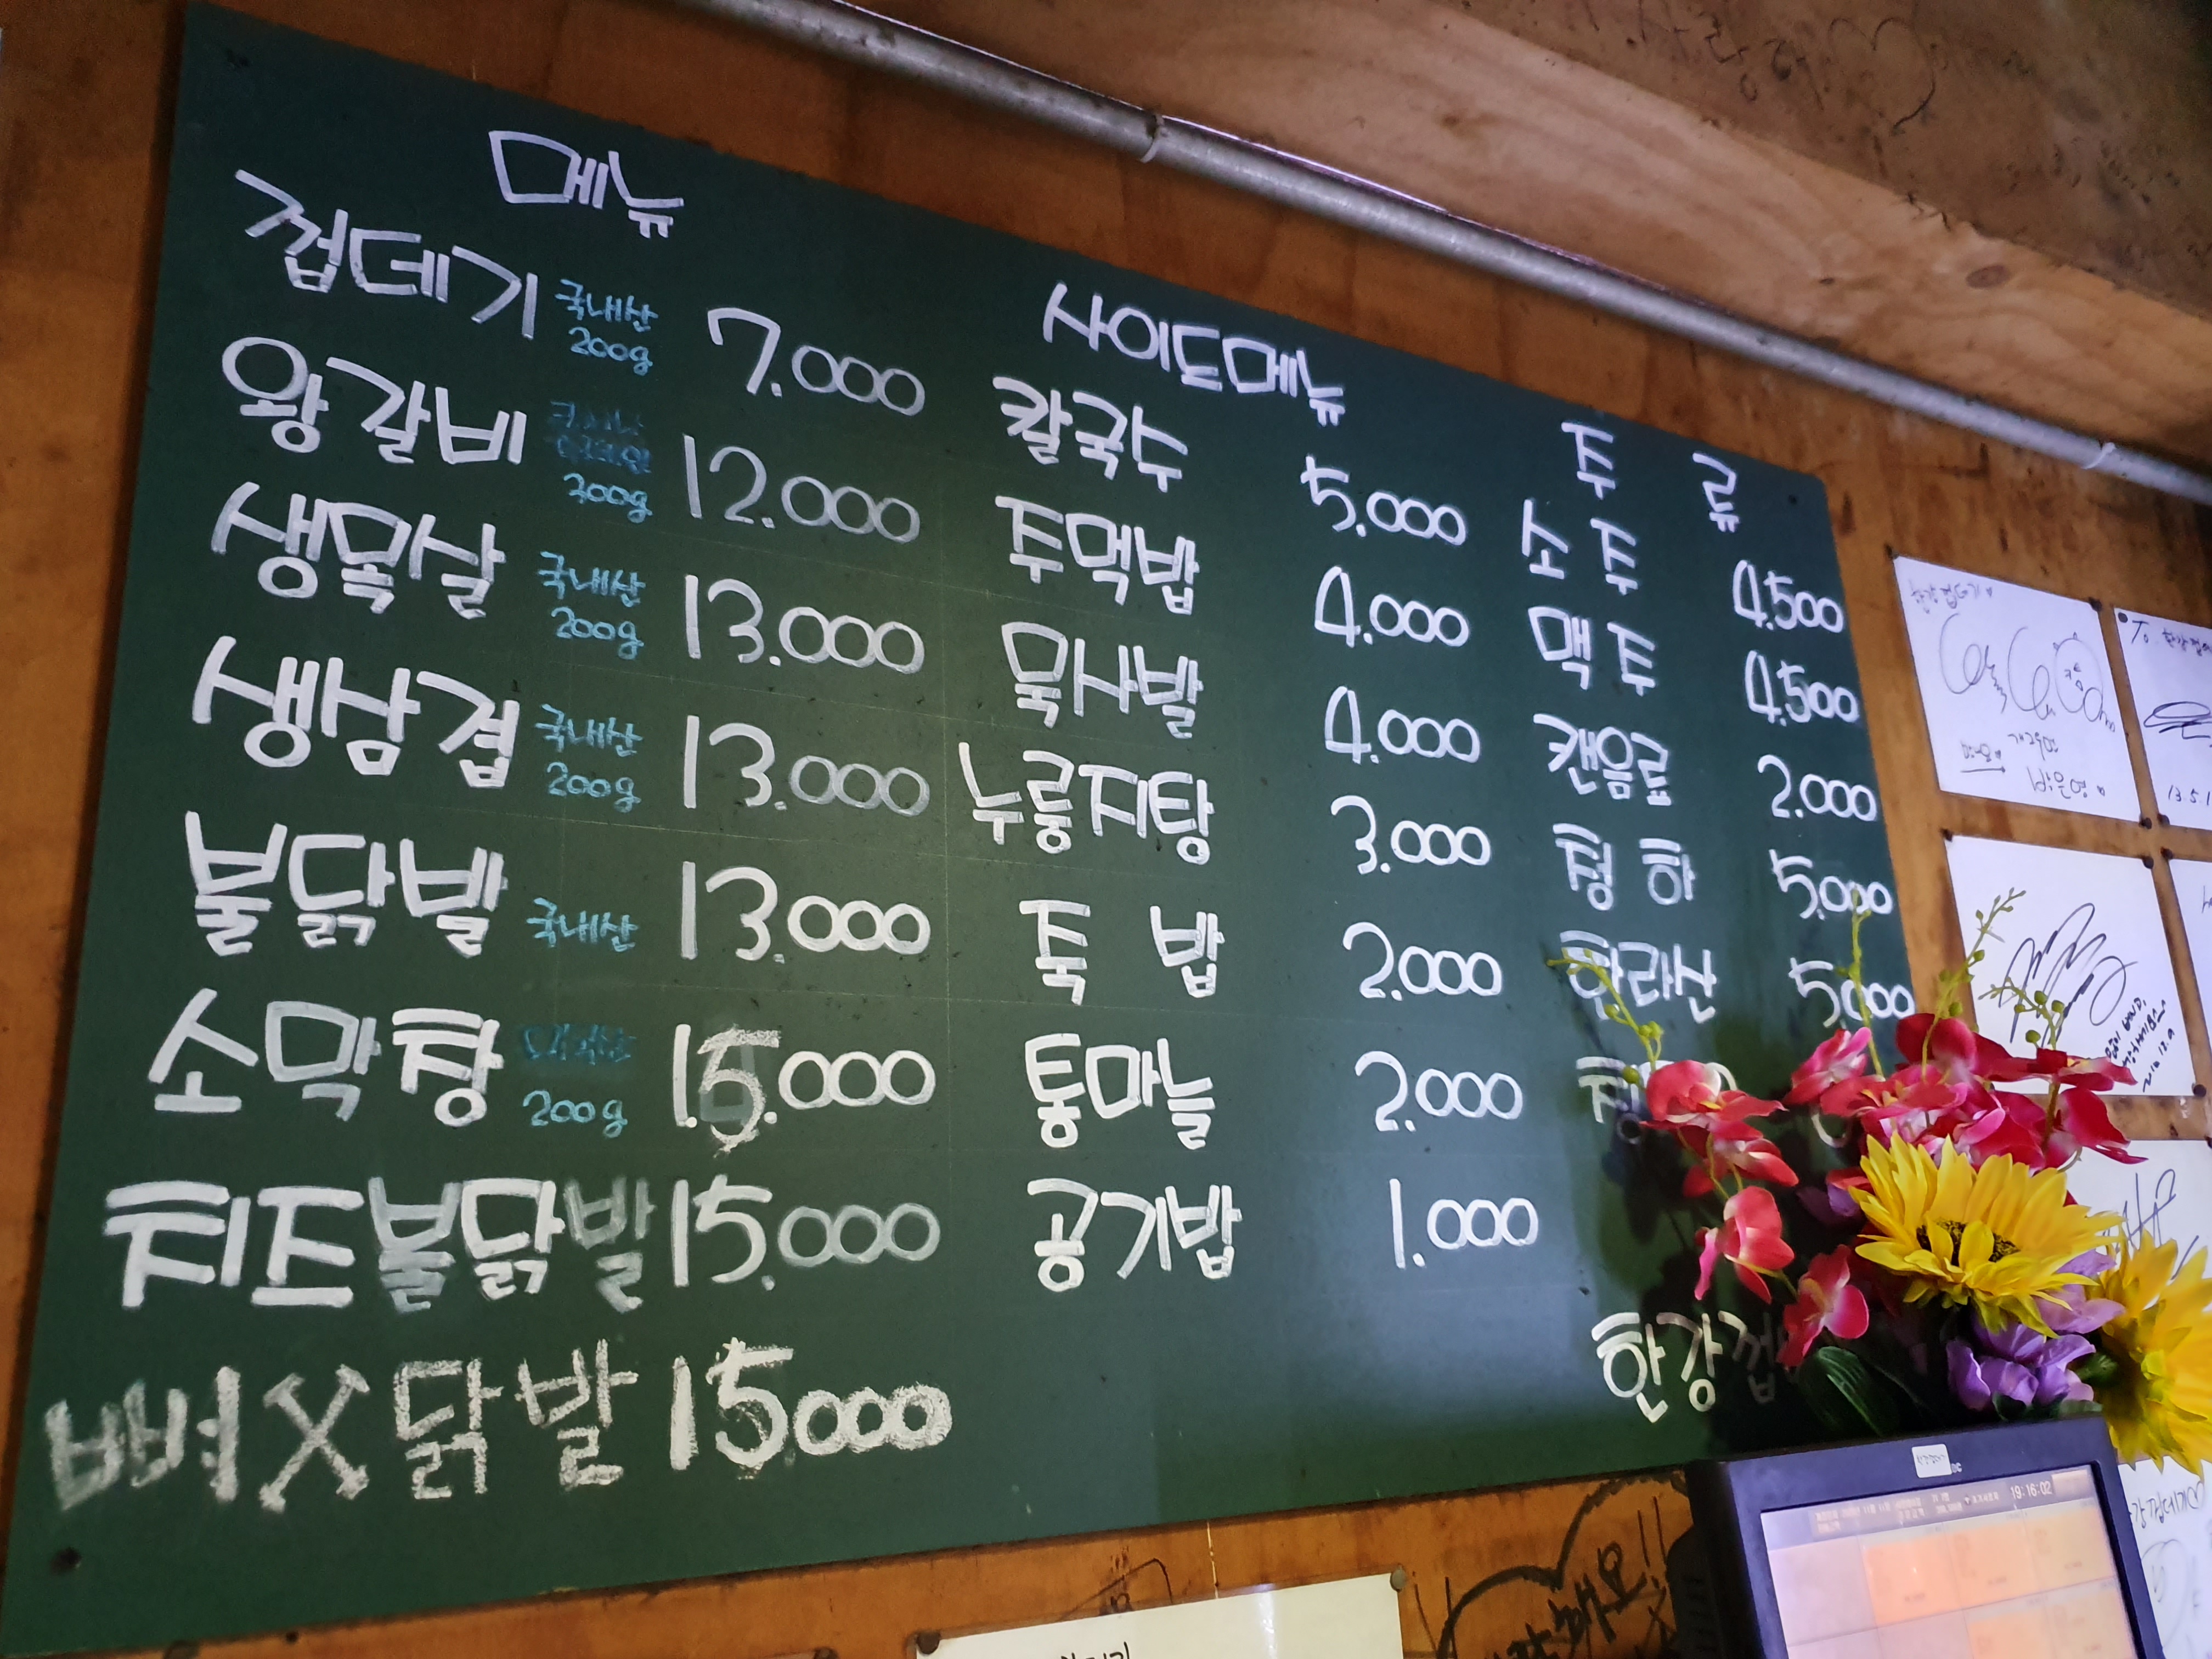 메뉴
껍데기 국내산 200g 7.000
왕갈비 300g 12.000
생목살 국내산 200g 13.000
생삼겹 국내산 200g 13.000
불닭발 국내산 13.000
소막창 200g 15.000
치즈불닭발 15.000
뼈 닭발 15000
사이드메뉴
칼국수 5.000
주먹밥 4.000
묵사발 4.000
누룽지탕 3.000
죽밥 2.000
통마늘 2.000
공기밥 1.000
주류
소주 4.500
맥주 4.500
캔음료 2.000
청하 5.000
한라산 5.000
한강껍
한강껍데기
박은영
To. 한강껍데
13.5.1
19:16:02